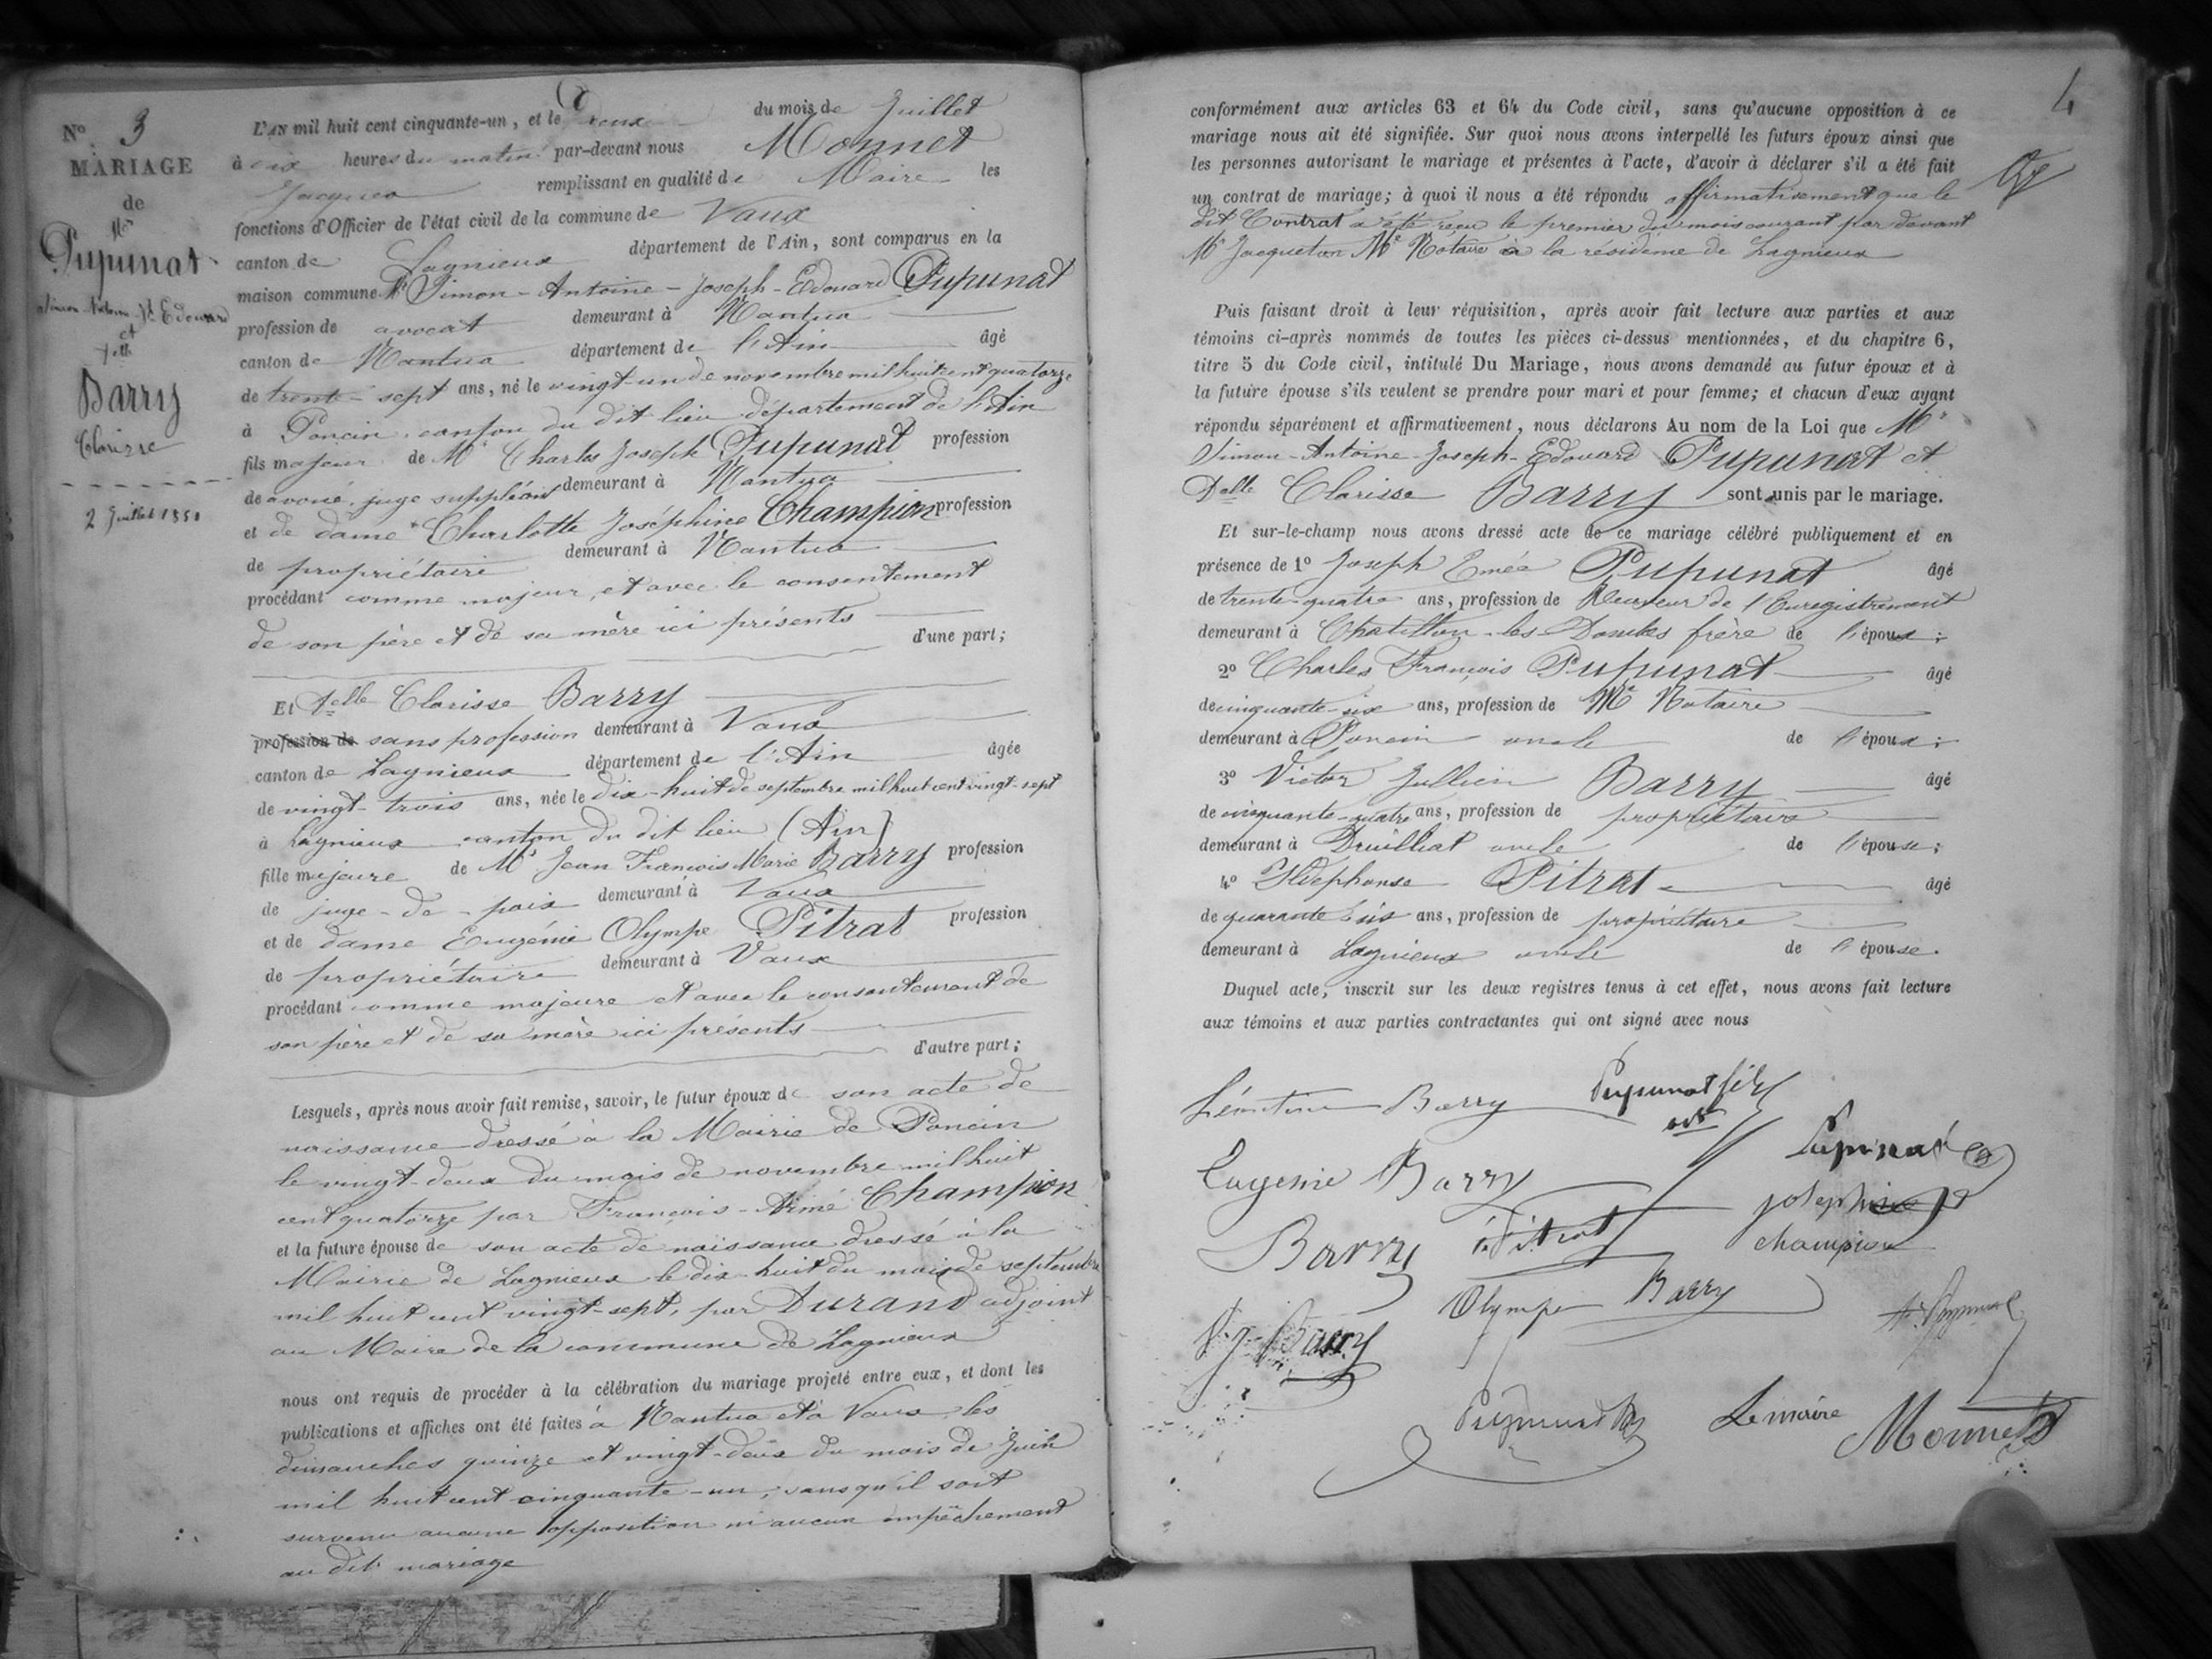 N.º 3
MARIAGE
de
Mr
Pupunat
Simon-Antoine-Jh Edouard
et
Delle
Barry
Clarisse
2 Juillet 1851
L'AN mil huit cent cinquante-un, et le deux du mois de Juillet
à dix heures du matin par-devant nous Monnet
Jacques remplissant en qualité de Maire les
fonctions d'Officier de l'état civil de la commune de Vaux
canton de Lagnieux département de l'Ain, sont comparus en la
maison commune Mr Simon-Antoine-Joseph-Edouard Pupunat
profession de avocat demeurant à Nantua
canton de Nantua département de l'Ain âgé
de trente-sept ans, né le vingt-un de novembre mil huit cent quatorze
à Poncin canton du dit lieu département de l'Ain
fils majeur de Mr Charles Joseph Pupunat profession
de avoué, juge suppléant demeurant à Nantua
et de dame Charlotte Joséphine Champion profession
de propriétaire demeurant à Nantua
procédant comme majeur, et avec le consentement
de son père et de sa mère ici présents
d'une part;
Et Delle Clarisse Barry
profession de sans profession demeurant à Vaux
canton de Lagnieux département de l'Ain âgée
de vingt-trois ans, née le dix-huit de septembre mil huit cent vingt-sept
à Lagnieux canton du dit lieu (Ain)
fille majeure de Mr Jean François Marie Barry profession
de juge-de-paix demeurant à Vaux
et de dame Eugénie Olympe Pitrat profession
de propriétaire demeurant à Vaux
procédant comme majeure et avec le consentement de
son père et de sa mère ici présents
d'autre part;
Lesquels, après nous avoir fait remise, savoir, le futur époux de son acte de
naissance dressé à la Mairie de Poncin
le vingt-deux du mois de novembre mil huit
cent quatorze par François-Aimé Champion
et la future épouse de son acte de naissance dressé à la
Mairie de Lagnieux le dix-huit du mois de septembre
mil huit cent vingt-sept, par Durand adjoint
au Maire de la commune de Lagnieux
nous ont requis de procéder à la célébration du mariage projeté entre eux, et dont les
publications et affiches ont été faites à Nantua et à Vaux les
dimanches quinze et vingt-deux du mois de Juin
mil huit cent cinquante-un, sans qu'il soit
survenu aucune opposition ni aucun empêchement
au dit mariage
4
conformément aux articles 63 et 64 du Code civil, sans qu'aucune opposition à ce
mariage nous ait été signifiée. Sur quoi nous avons interpellé les futurs époux ainsi que
les personnes autorisant le mariage et présentes à l'acte, d'avoir à déclarer s'il a été fait
un contrat de mariage; à quoi il nous a été répondu affirmativement que le
dit Contrat a été reçu le premier du mois courant par devant
Me Jacqueton Me Notaire à la résidence de Lagnieux
Puis faisant droit à leur réquisition, après avoir fait lecture aux parties et aux
témoins ci-après nommés de toutes les pièces ci-dessus mentionnées, et du chapitre 6,
titre 5 du Code civil, intitulé Du Mariage, nous avons demandé au futur époux et à
la future épouse s'ils veulent se prendre pour mari et pour femme; et chacun d'eux ayant
répondu séparément et affirmativement, nous déclarons Au nom de la Loi que Mr
Simon-Antoine-Joseph-Edouard Pupunat et
Delle Clarisse Barry sont unis par le mariage.
Et sur-le-champ nous avons dressé acte de ce mariage célébré publiquement et en
présence de 1º Joseph Emée Pupunat âgé
de trente-quatre ans, profession de Receveur de l'Enregistrement
demeurant à Chatillon-les-Dombes frère de l'époux;
2º Charles François Pupunat âgé
de cinquante-six ans, profession de Me Notaire
demeurant à Poncin oncle de l'époux;
3º Victor Jullien Barry âgé
de cinquante-quatre ans, profession de propriétaire
demeurant à Druillat oncle de l'épouse;
4º Ildephonse Pitrat âgé
de quarante ans, profession de propriétaire
demeurant à Lagnieux oncle de l'épouse.
Duquel acte, inscrit sur les deux registres tenus à cet effet, nous avons fait lecture
aux témoins et aux parties contractantes qui ont signé avec nous
Barry Pupunat fils
Eugenie Barry Pupunat
Barry Pitrat josephine
champion
Olympe Barry
V. J. Barry
Pupunat Le maire Monnet